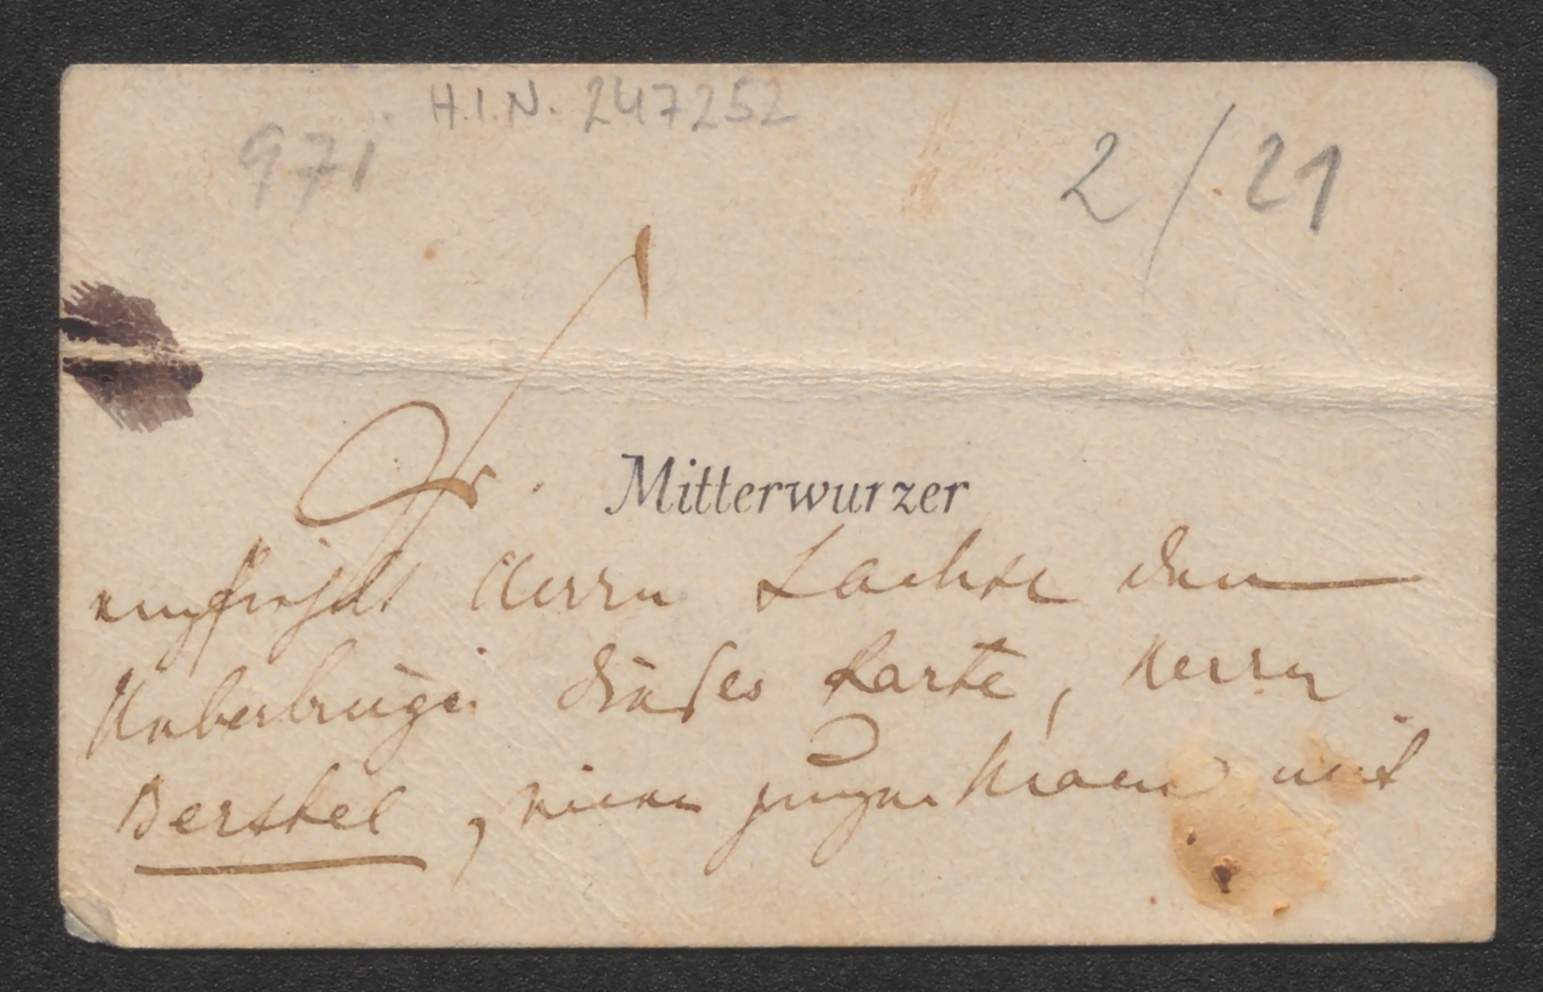 H.I.N. 247252
971
2/21
Fr. Mitterwurzer
empfiehlt Herrn den
Ueberbringer dieser Karte, Herrn
Berstel, einen jungen Mann mit